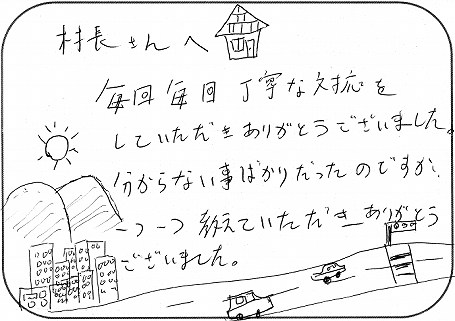 村長さんへ
毎回毎回丁寧な対応を
していただきありがとうございました。
分からない事ばかりだったのですが、
一つ一つ教えていただきありがとう
ございました。